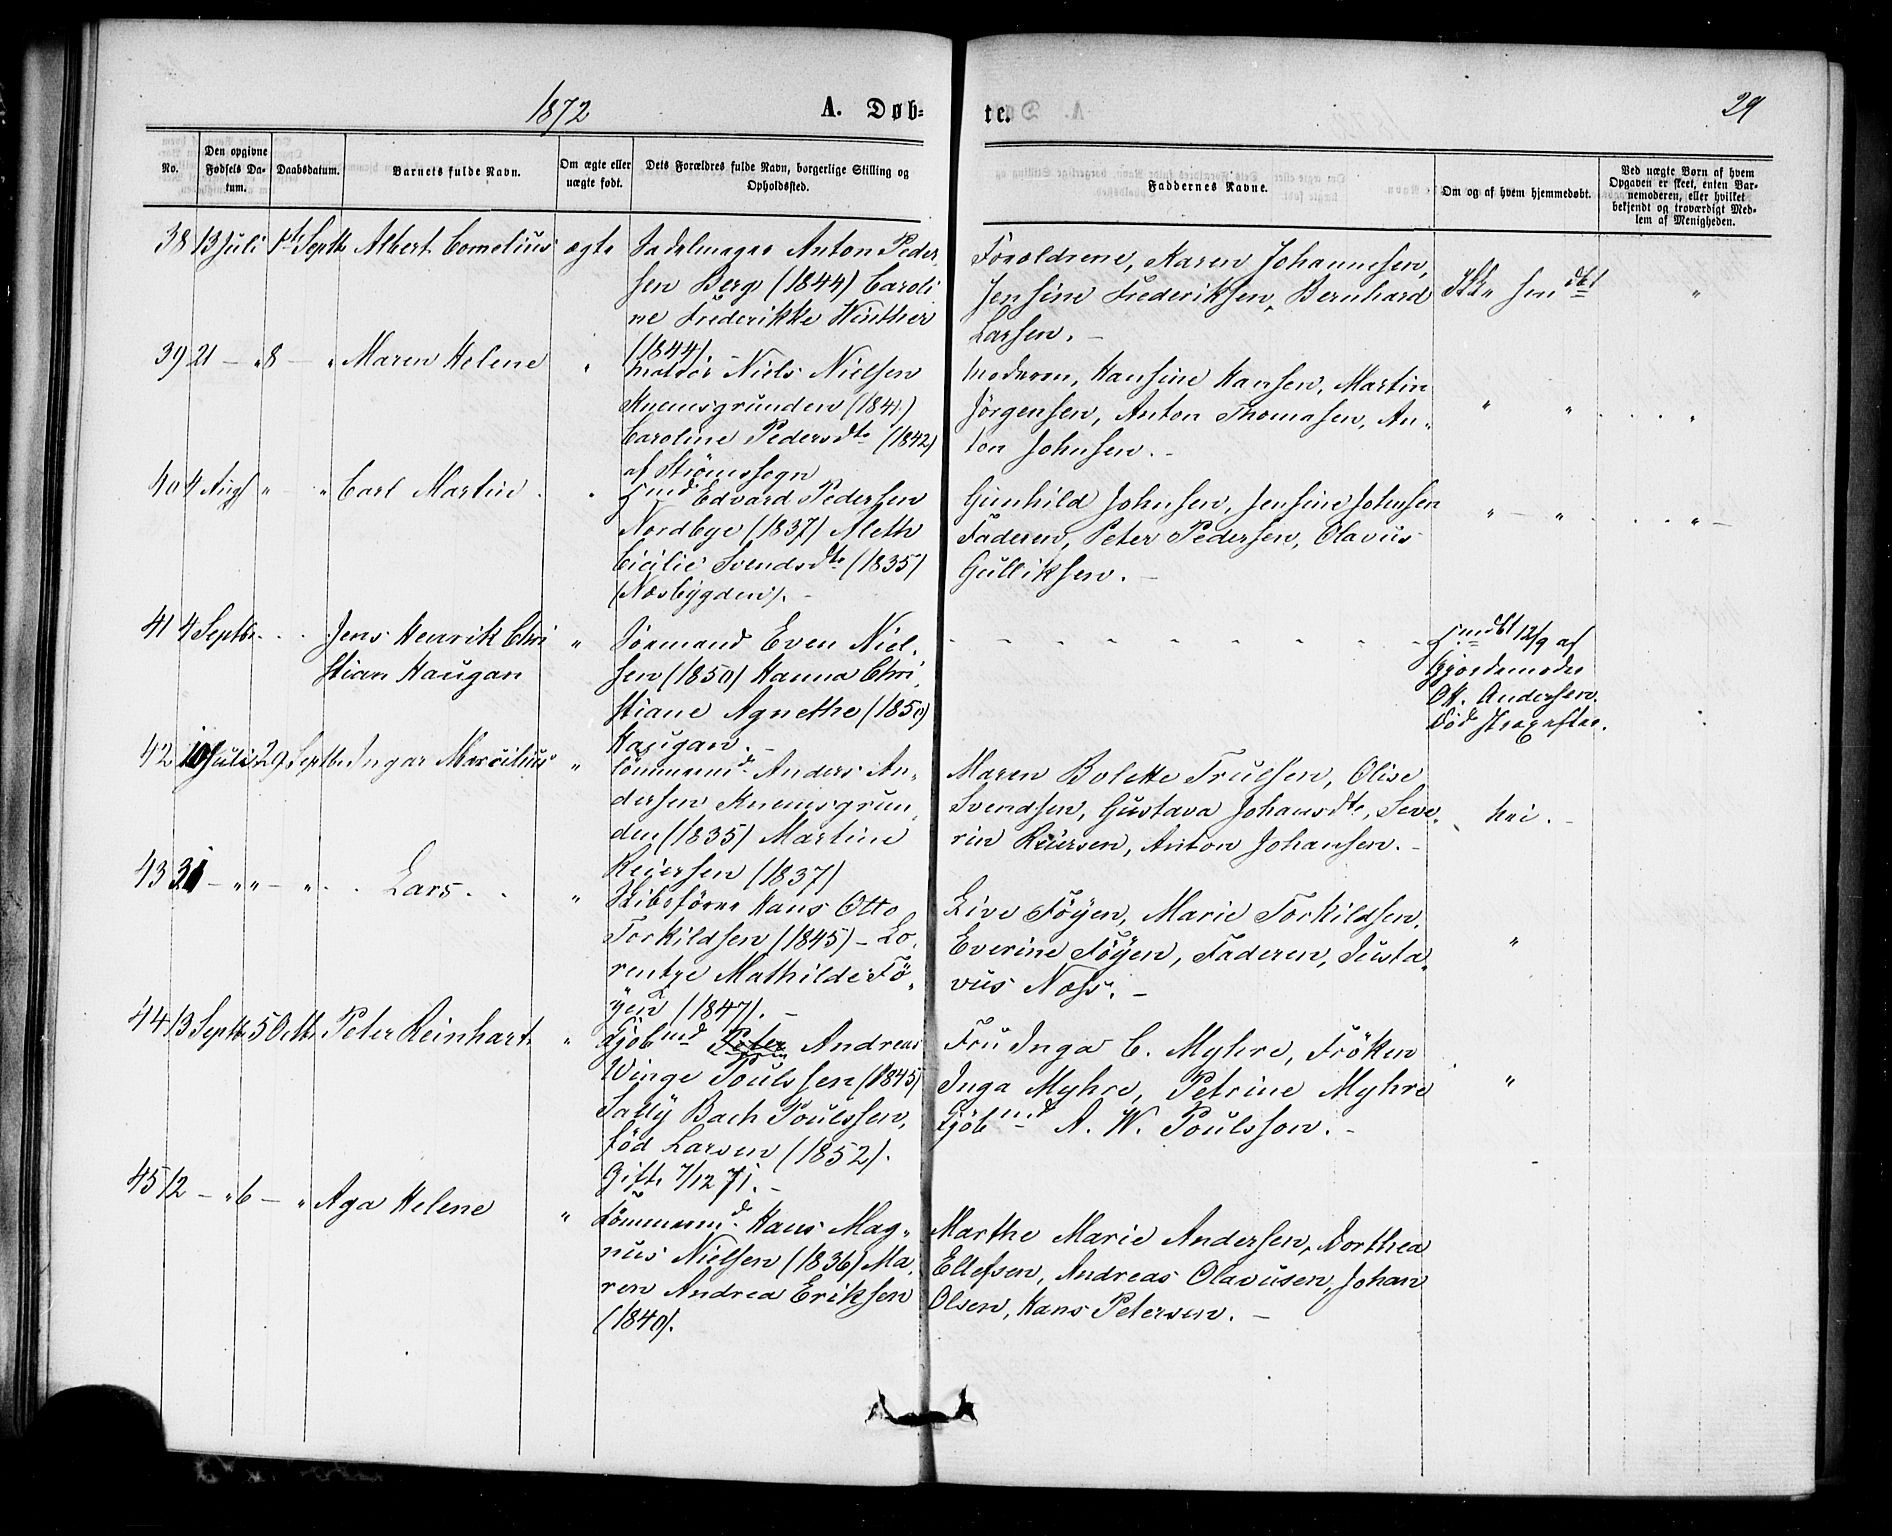 1872
A. Døb=
te.
29
No.
Den opgivne Fødsels Da-
tum.
Daabsdatum.
Barnets fulde Navn.
Om ægte eller
uægte født.
Dets Forældres fulde Navn, borgerlige Stilling og
Opholdssted.
Faddernes Navne.
Om og af hvem hjemmedøbt.
Ved uægte Børn af hvem
Opgaven er skeet, enten Bar-
nemoderen, eller hvilket
bekjendt og troværdigt Med-
lem af Menigheden.
38 13 Juli 1st Septbr Albert Cornelius ægte
Sadelmager Anton Peder-
sen Berg (1844) Caroli
ne Frederikke Winther
(1844)
Forældrene, Karen Johannesen,
Jensine Frederiksen, Bernhard
Larsen. -
Ikke hmdbt "
39 21 - " 8 - " Maren Helene "
Matros Niels Nielsen
Knemsgrunden (184.)
Caroline Pedersdtr (1842)
af Strømssogn
Moderen, Hansine Hansen, Martin
Jörgensen, Anton Thomasen, An-
ton Johnsen. -
" " "
40 4 Aug " - " Carl Martin "
Edvard Pedersen
Nordbye (1837) Aleth
Cicilie Svendsdtr (1835)
(Næsbygden). -
Gunhild Johnsen, Jensine Johnsen
Faderen, Peter Pedersen, Olavus
Gulliksen. -
" - " " -
41 4 Septbr. . . Jens Henrik Chri
stian Haugan "
Sømand Even Niel-
sen (1850) Hanna Chri
stiane Agnethe (1850)
Haugan. -
hmdbt 12/9 af
Gjordemoder
Andersen.
Død strax efter.
42 10 Juli 29 Septbr Ingar Marcilius "
Tömmermd. Anders An-
dersen Knemsgrun
den (1835) Martine
Reiersen (1837)
Maren Bolette Truesen, Olise
Svendsen, Gustava Johansdtr, Seve-
rin Reiersen, Anton Johansen. -
Nei. -
43 31 - " " - " . . Lars. . "
Skibsfører Hans Otto
Torkildsen (1845) - Lo-
rentze Mathilde Fö-
yen (1847). -
Live Föyen, Marie Torkildsen,
Everine Föyen, Faderen, Gusta-
vus Næss. -
"
44 13 Septbr 5 Octbr. Peter Reinhart "
Kjöbmd Peter Andreas
Winge Poulssen (1845)
Sally Bach Poulssen,
föd Larsen (1852).
Gift 7/12 71. -
Fru Inga C. Myhre, Fröken
Inga Myhre, Petrine Myhre
Kjöbmd A. W. Poulsson. -
"
45 12 - " 6 - " Aga Helene "
Tömmermd. Hans Mag-
nus Nielsen (1836) Ma-
ren Andrea Eriksen
(1840).
Marthe Marie Andersen, Dorthea
Ellefsen, Andreas Olavusen, Johan
Olsen, Hans Petersen. -